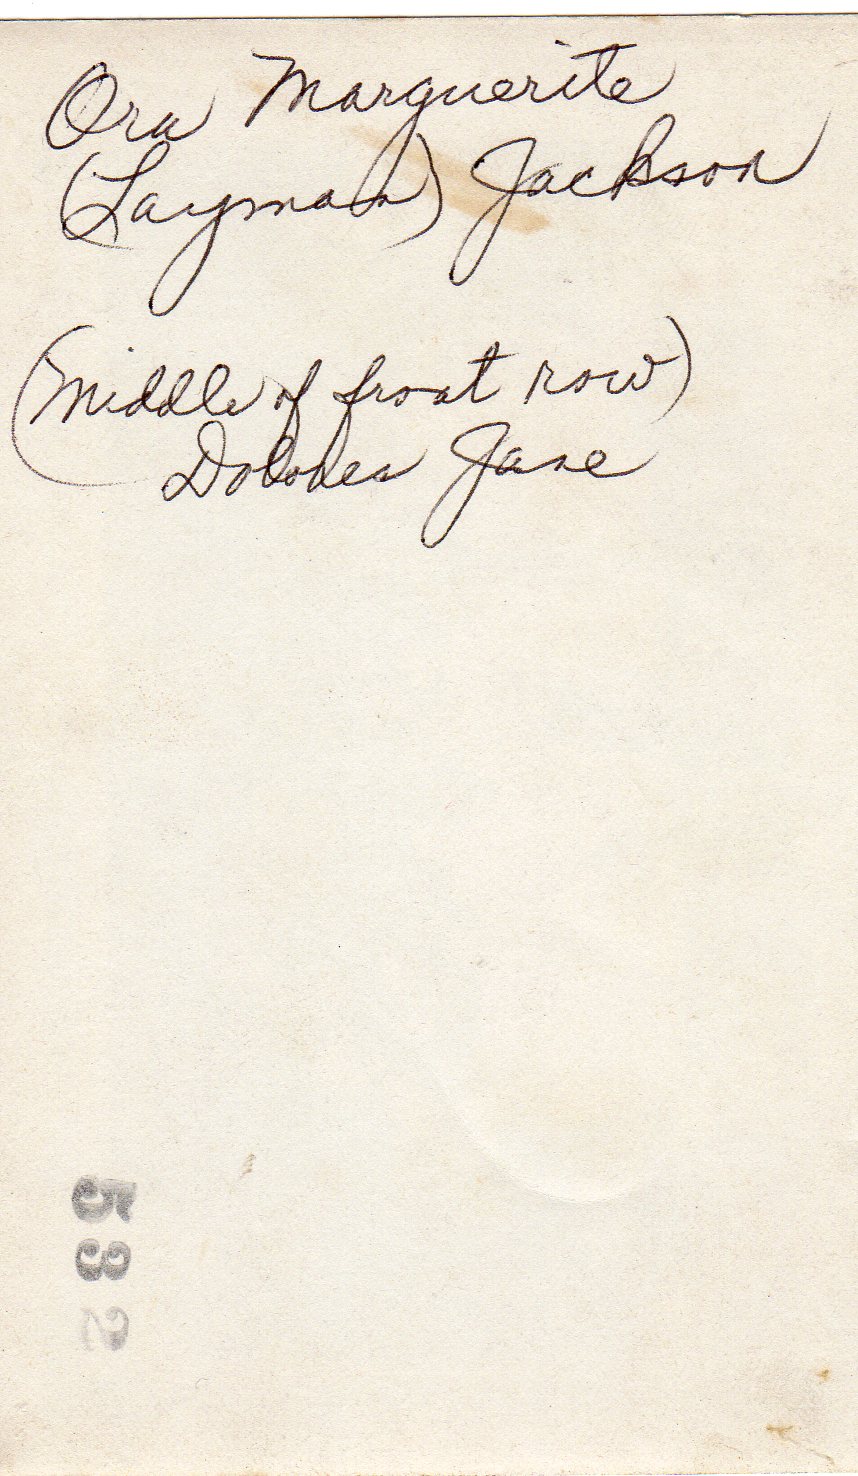 Ora Marguerite
(Layman) Jackson
(Middle of front row)
Dolores Jane
532